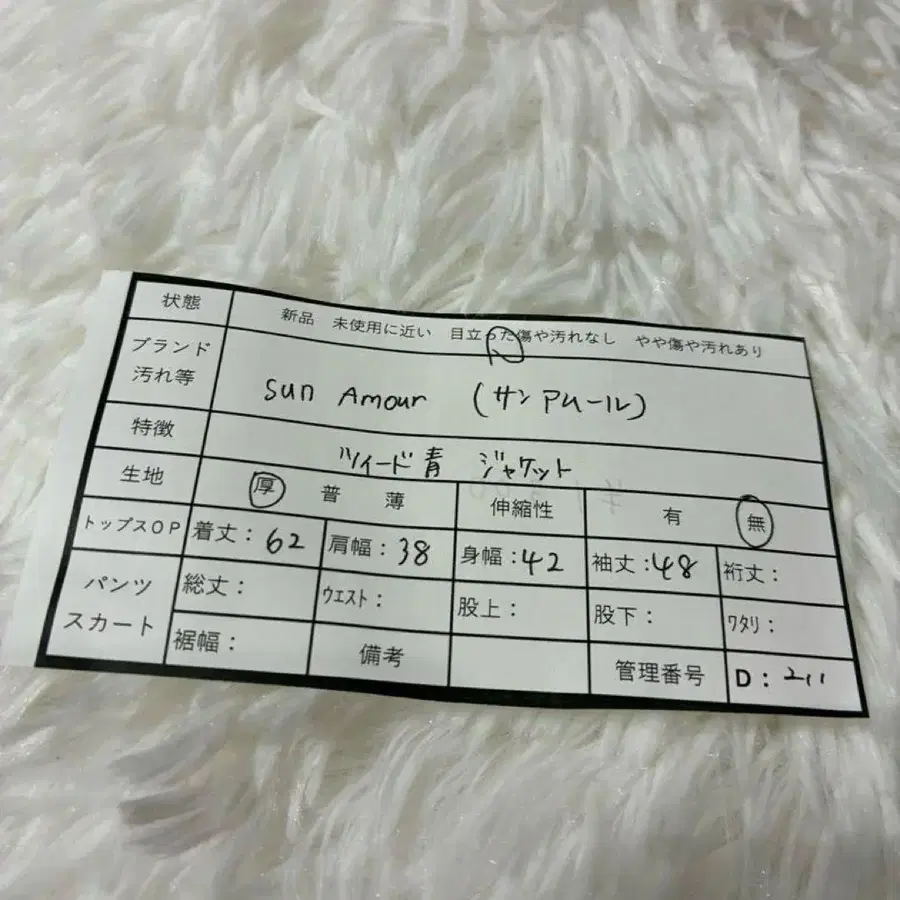 状態 新品 未使用に近い 目立った傷や汚れなし やや傷や汚れあり
ブランド
汚れ等 sun Amour (サンアムール)
特徴 ツイード青 ジャケット
生地 厚 普 薄 伸縮性 有 無
トップスOP 着丈:62 肩幅:38 身幅:42 袖丈:48 裄丈:
パンツ
スカート 総丈: ウエスト: 股上: 股下: ワタリ:
裾幅: 備考 管理番号 D:211